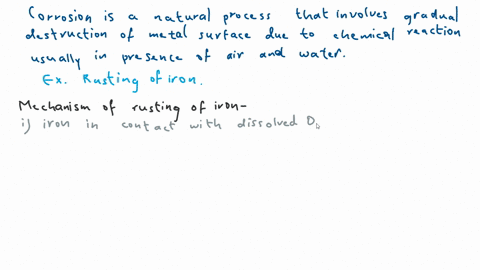 Corrosion is a natural process that involves gradual
destruction of metal surface due to chemical reaction
usually in presence of air and water.
Ex. Rusting of iron.
Mechanism of rusting of iron-
i) iron in contact with dissolved O